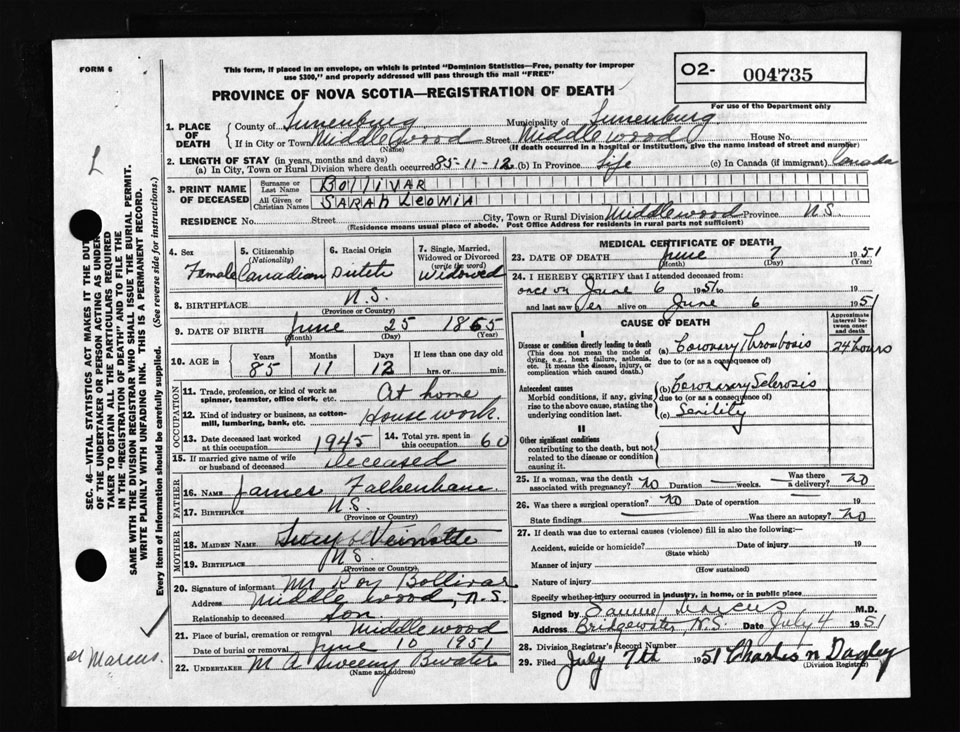 FORM 6
This form, if placed in an envelope, on which is printed "Dominion Statistics—Free, penalty for improper
use $300," and properly addressed will pass through the mail "FREE"
O2- 004735
For use of the Department only
PROVINCE OF NOVA SCOTIA—REGISTRATION OF DEATH
1. PLACE OF DEATH County of Lunenburg Municipality of Lunenburg
If in City or Town Middlewood Street Middlewood House No.
(Name) (If death occurred in a hospital or institution, give the name instead of street and number)
2. LENGTH OF STAY (in years, months and days)
(a) In City, Town or Rural Division where death occurred 85-11-12 (b) In Province Life (c) In Canada (if immigrant) Canada
3. PRINT NAME OF DECEASED Surname or Last Name BOLLIVAR
All Given or Christian Names SARAH LEOMIA
RESIDENCE No. Street City, Town or Rural Division Middlewood Province N.S.
(Residence means usual place of abode. Post Office Address for residents in rural parts not sufficient)
4. Sex Female
5. Citizenship (Nationality) Canadian
6. Racial Origin Dutch
7. Single, Married, Widowed or Divorced (write the word) Widowed
8. BIRTHPLACE N.S.
(Province or Country)
9. DATE OF BIRTH June 25 1865
(Month) (Day) (Year)
10. AGE in Years 85 Months 11 Days 12 If less than one day old
hrs. or min.
OCCUPATION
11. Trade, profession, or kind of work as spinner, teamster, office clerk, etc. At home
12. Kind of industry or business, as cotton-mill, lumbering, bank, etc. House work.
13. Date deceased last worked at this occupation 1945 14. Total yrs. spent in this occupation 60
15. If married give name of wife or husband of deceased Deceased
FATHER
16. NAME James Falkenham
17. BIRTHPLACE N.S.
(Province or Country)
MOTHER
18. MAIDEN NAME Veinotte
19. BIRTHPLACE N.S.
(Province or Country)
20. Signature of informant Mr Roy Bollivar
Address Middlewood, N.S.
Relationship to deceased Son
21. Place of burial, cremation or removal Middlewood
Date of burial or removal June 10 1951
22. UNDERTAKER M A Sweeny Bwater
(Name and Address)
MEDICAL CERTIFICATE OF DEATH
23. DATE OF DEATH June 7 1951
(Month) (Day) (Year)
24. I HEREBY CERTIFY that I attended deceased from:
once on June 6 1951 to 19
and last saw her alive on June 6 1951
CAUSE OF DEATH
Approximate interval between onset and death
I
Disease or condition directly leading to death (a) Coronary Thrombosis 24 hours
(This does not mean the mode of dying, e.g., heart failure, asthenia, etc. It means the disease, injury, or complication which caused death.)
due to (or as a consequence of)
Antecedent causes (b) Coronary Sclerosis
Morbid conditions, if any, giving rise to the above cause, stating the underlying condition last.
due to (or as a consequence of)
(c) Senility
II
Other significant conditions
contributing to the death, but not related to the disease or condition causing it.
25. If a woman, was the death associated with pregnancy? no Duration — weeks. — Was there a delivery? no
26. Was there a surgical operation? no Date of operation — 19
State findings Was there an autopsy? no
27. If death was due to external causes (violence) fill in also the following:—
Accident, suicide or homicide? Date of injury 19
(State which)
Manner of injury
(How sustained)
Nature of injury
Specify whether injury occurred in industry, in home, or in public place
Signed by Samuel Marcus M.D.
Address Bridgewater, N.S. Date July 4 1951
28. Division Registrar's Record Number
29. Filed July 7th 1951 Charles N Dagley
(Division Registrar)
L
SEC. 46—VITAL STATISTICS ACT MAKES IT THE DUTY
OF THE UNDERTAKER OR PERSON ACTING AS UNDER-
TAKER TO OBTAIN ALL THE PARTICULARS REQUIRED
IN THE "REGISTRATION OF DEATH" AND TO FILE THE
SAME WITH THE DIVISION REGISTRAR WHO SHALL ISSUE THE BURIAL PERMIT.
WRITE PLAINLY WITH UNFADING INK. THIS IS A PERMANENT RECORD.
Every item of information should be carefully supplied. (See reverse side for instructions.)
Marcus.